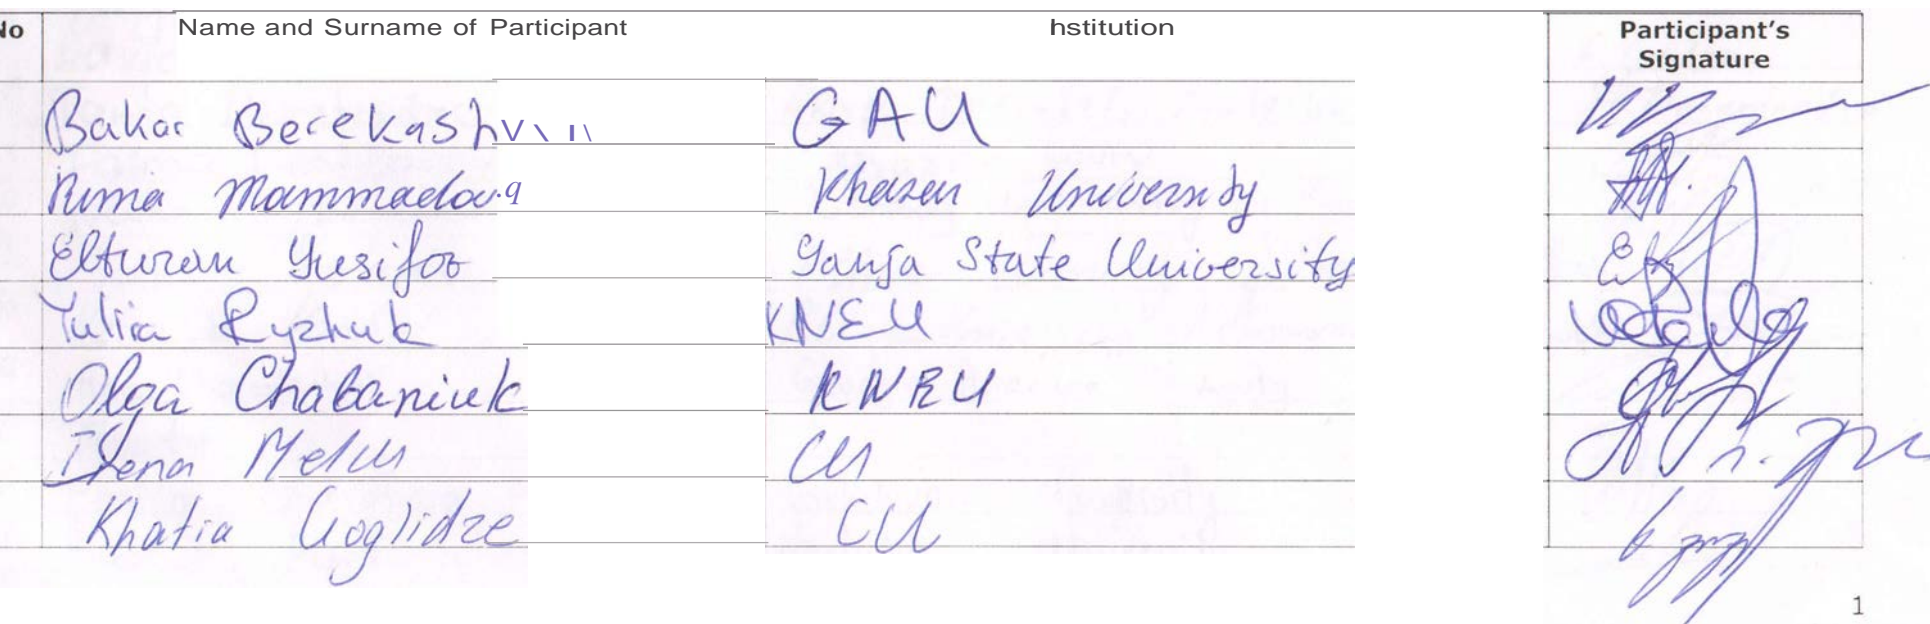 No Name and Surname of Participant Institution Participant's
Signature
Bakar Berekashvili GAU
Mammadova Khazar University
Elturan Yusifov Ganja State University
Yuliia Ryzhuk KNEU
Olga Chabaniuk KNEU
Irena Melua CU
Khatia Goglidze CU
1